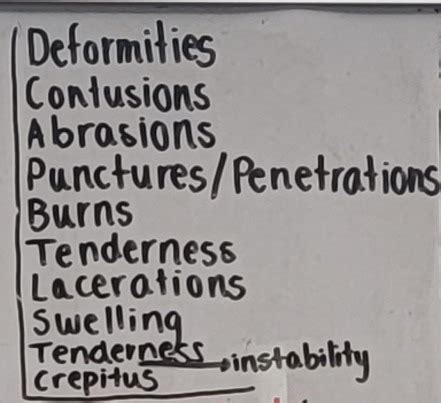 Deformities
Contusions
Abrasions
Punctures/Penetrations
Burns
Tenderness
Lacerations
Swelling
Tenderness instability
Crepitus